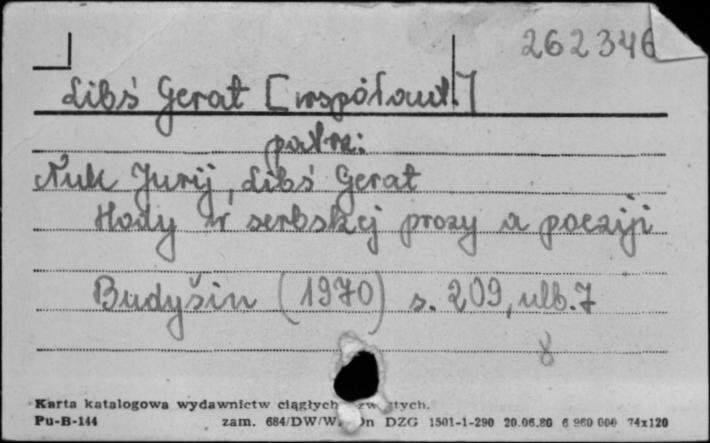 262346
Libś Gerat [współaut.]
patrz:
Nuk Jurij, Libś Gerat
Hody w serbskej prozy a poeziji
Budyšin (1970) s. 209, ulb. 7
8
Karta katalogowa wydawnictw ciągłych zwartych.
Pu-B-144 zam. 684/DW/W. Dn DZG 1501-1-290 20.06.80 6 960 000 74x120